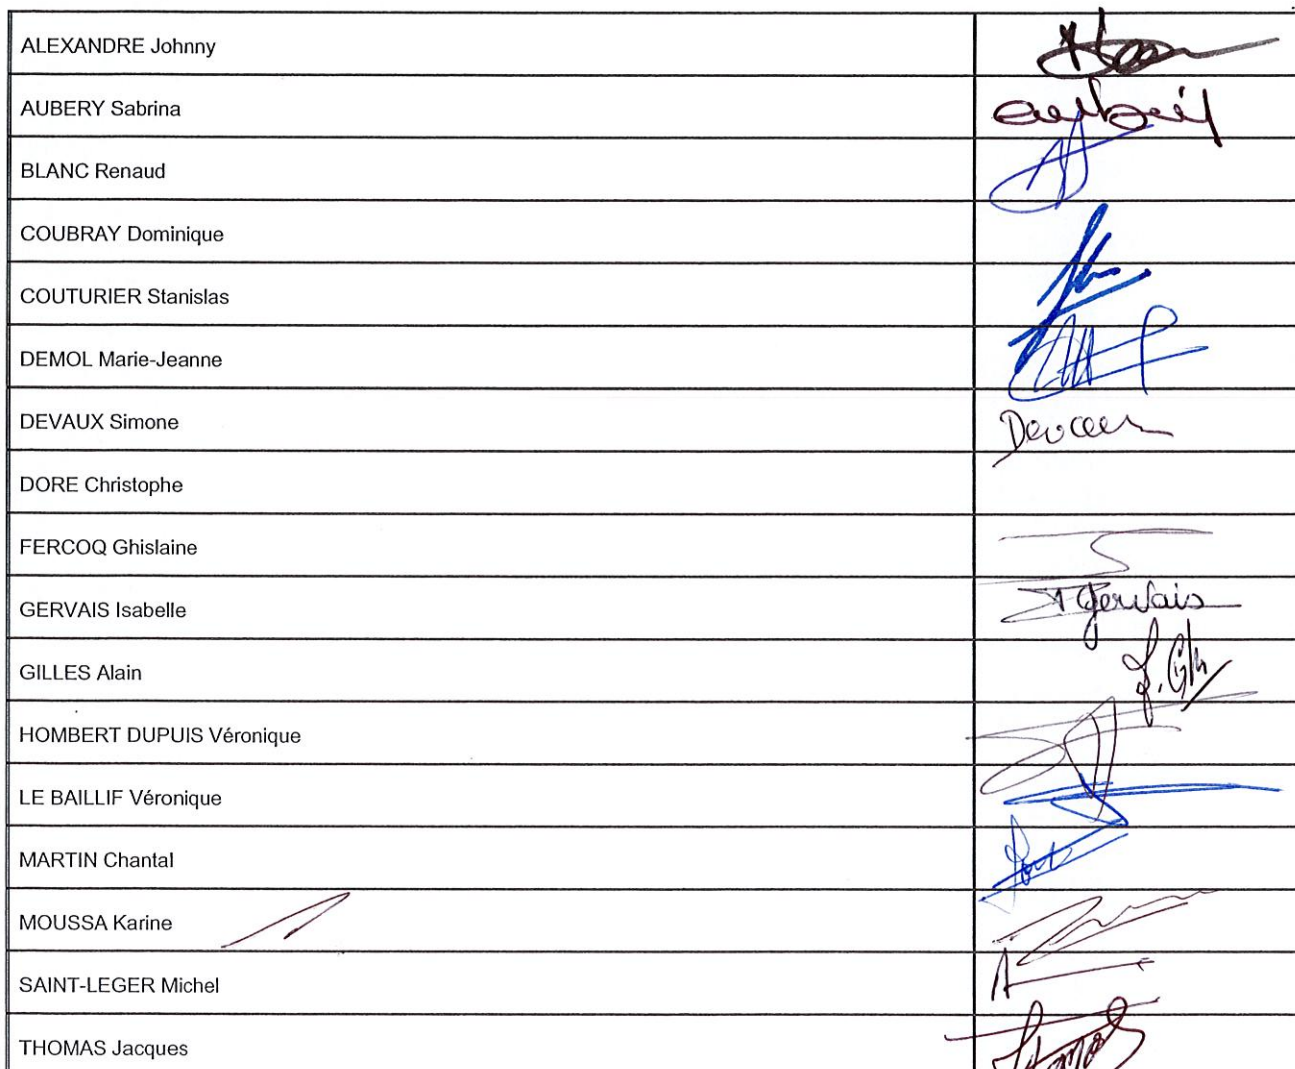 ALEXANDRE Johnny
AUBERY Sabrina
BLANC Renaud
COUBRAY Dominique
COUTURIER Stanislas
DEMOL Marie-Jeanne
DEVAUX Simone
DORE Christophe
FERCOQ Ghislaine
GERVAIS Isabelle Gervais
GILLES Alain
HOMBERT DUPUIS Véronique
LE BAILLIF Véronique
MARTIN Chantal
MOUSSA Karine
SAINT-LEGER Michel
THOMAS Jacques